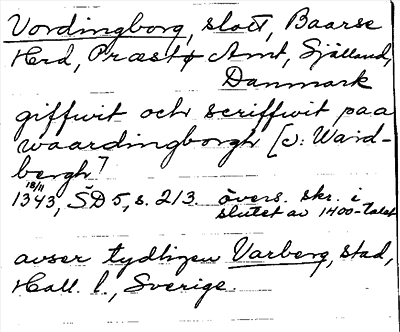 Vordingborg, slott, Baarse
Hrd, Præstø Amt, Sjælland,
Danmark
giffwit och scriffwit paa
waardingborgh [ɔ: Ward-
bergh]
18/11
1343, SD 5, s. 213. övers. skr. i
slutet av 1400-talet
avser tydligen Varberg, stad,
Hall. l., Sverige.